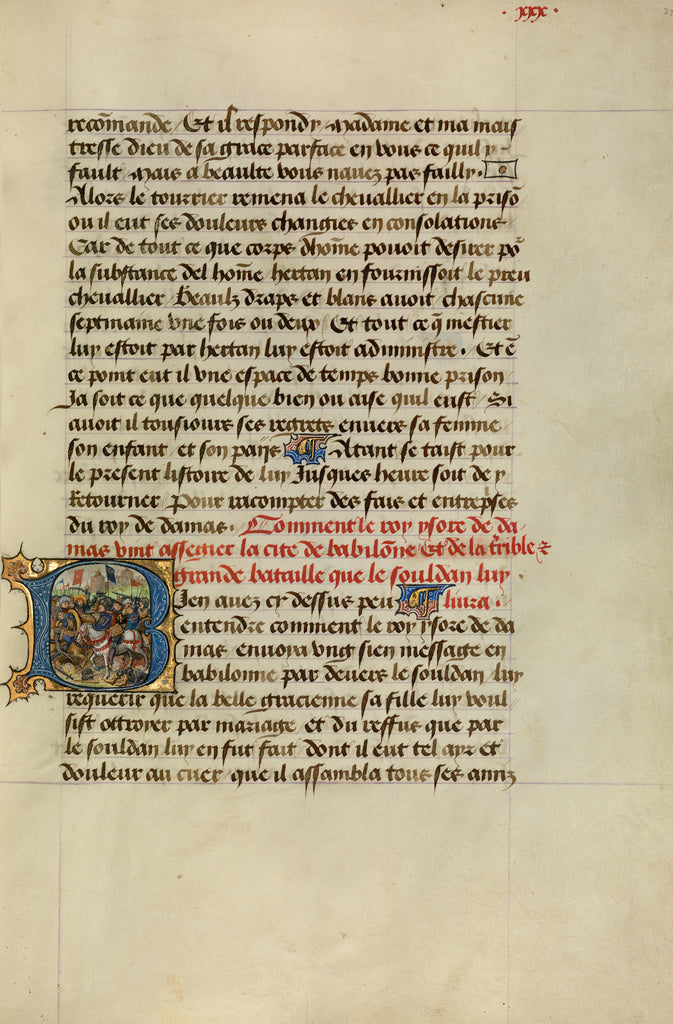 · xxx ·
recōmande / Et il respondy Madame et ma mais
tresse dieu de sa grace parface en vous ce quil y
fault Mais a beaulte vous navez pas failly ·
Alors le tourrier remena le chevallier en la prisō
ou il eut ses douleurs changies en consolations
Car de tout ce que corps dhōme povoit desirer po᷑
la substance del hōme / hertan en fournissoit le preu
chevallier / Beaulz draps et blans avoit chascune
septmaine vne fois ou deux / Et tout ce q̄ mestier
luy estoit par hertan luy estoit administre · Et ē
ce point eut il vne espace de temps bonne prison
Ja soit ce que quelque bien ou aise quil eust / Si
avoit il tousiours ses regrets envers sa femme
son enfant et son pays ¶ Atant se taist pour
le present listoire de luy Jusques heure soit de y
Retourner Pour racompter des fais et entreprses
du roy de damas · Comment le roy ysore de da-
mas vint assegier la cite de babilōne Et de la t̄rible z
grande bataille que le souldan luy
Bien avez cy dessus peu ¶ livra ·
entendre comment le roy ysore de da
mas envoya vng sien message en
babilonne par devers le souldan luy
requerir que la belle gracienne sa fille luy voul
sist ottroyer par mariage et du reffus que par
le souldan luy en fut fait dont il eut tel ayr et
douleur au cuer / que il assambla tous ses amiz